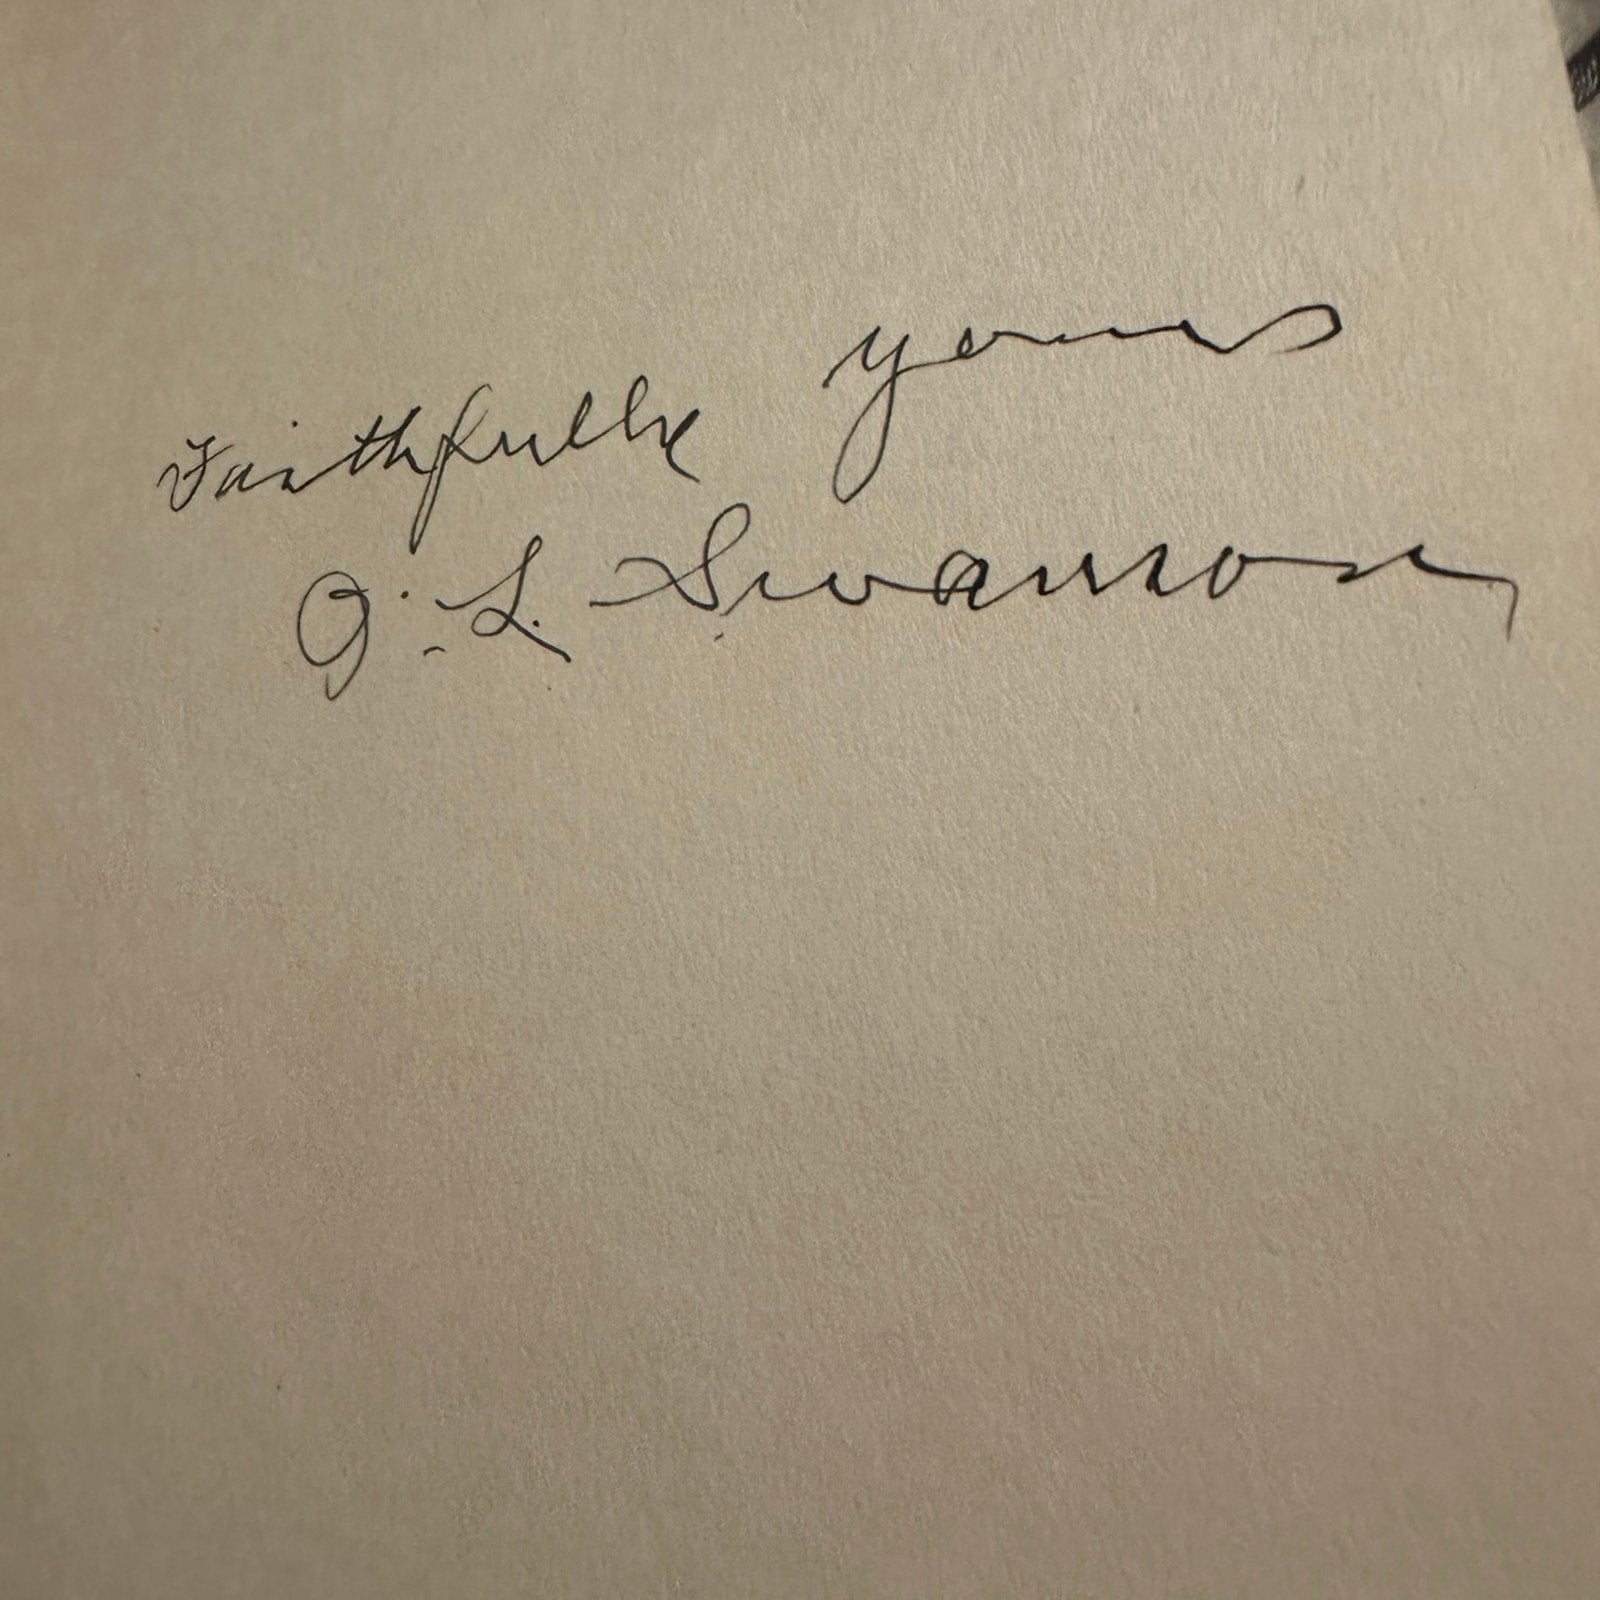 Faithfully yours
G. L. Swanson